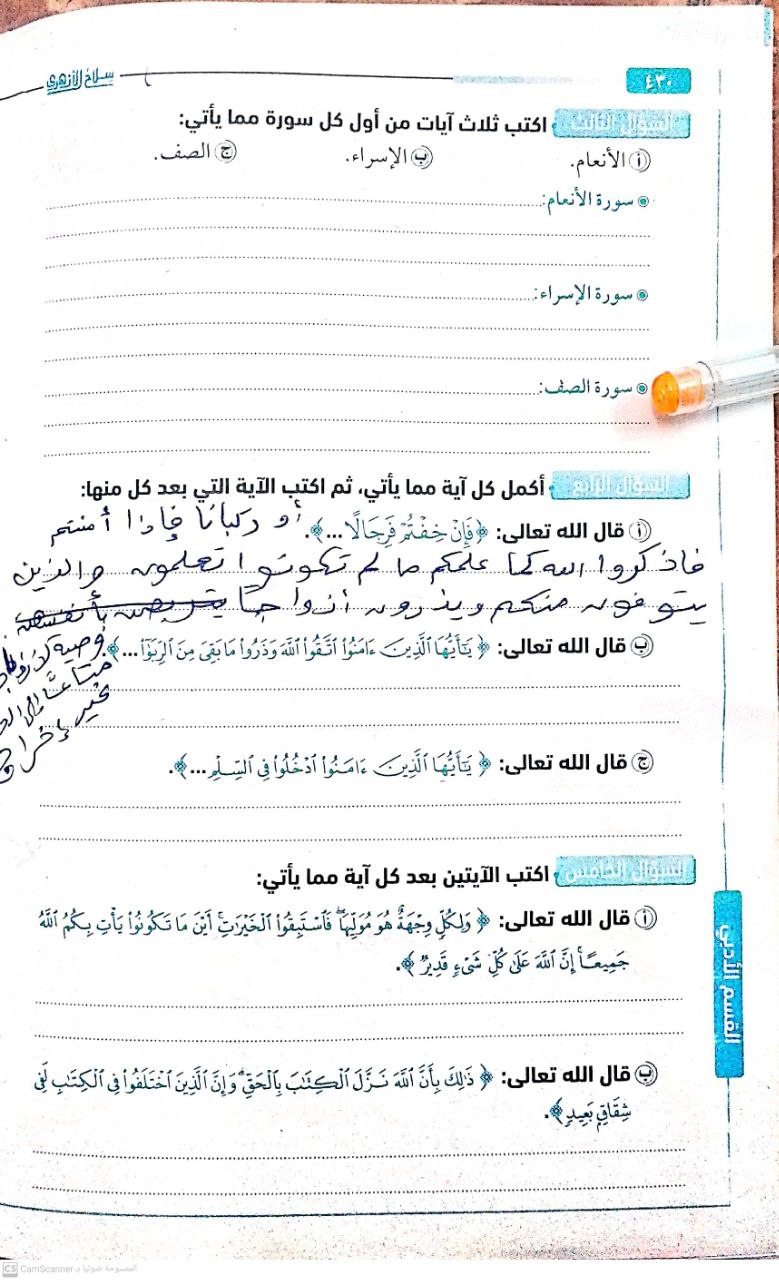 ٤٣٠
سلاح الأزهري
السؤال الثالث اكتب ثلاث آيات من أول كل سورة مما يأتي:
أ الأنعام. ب الإسراء. ج الصف.
سورة الأنعام:
سورة الإسراء:
سورة الصف:
السؤال الرابع أكمل كل آية مما يأتي، ثم اكتب الآية التي بعد كل منها:
أ قال الله تعالى: ﴿فَإِنْ خِفْتُمْ فَرِجَالًا...﴾. أو ركبانا فإذا أمنتم
فاذكروا الله كما علمكم ما لم تكونوا تعلمون والذين
يتوفون منكم ويذرون أزواجا يتربصن بأنفسهن
ب قال الله تعالى: ﴿يَٰٓأَيُّهَا ٱلَّذِينَ ءَامَنُوا۟ ٱتَّقُوا۟ ٱللَّهَ وَذَرُوا۟ مَا بَقِىَ مِنَ ٱلرِّبَوٰٓا۟...﴾.
وصية
متاعا
غير إخراج
ج قال الله تعالى: ﴿يَٰٓأَيُّهَا ٱلَّذِينَ ءَامَنُوا۟ ٱدْخُلُوا۟ فِى ٱلسِّلْمِ...﴾.
السؤال الخامس اكتب الآيتين بعد كل آية مما يأتي:
أ قال الله تعالى: ﴿وَلِكُلٍّ وِجْهَةٌ هُوَ مُوَلِّيهَا ۖ فَٱسْتَبِقُوا۟ ٱلْخَيْرَٰتِ ۚ أَيْنَ مَا تَكُونُوا۟ يَأْتِ بِكُمُ ٱللَّهُ
جَمِيعًا ۚ إِنَّ ٱللَّهَ عَلَىٰ كُلِّ شَىْءٍ قَدِيرٌ﴾.
القسم الأدبي
ب قال الله تعالى: ﴿ذَٰلِكَ بِأَنَّ ٱللَّهَ نَزَّلَ ٱلْكِتَٰبَ بِٱلْحَقِّ ۗ وَإِنَّ ٱلَّذِينَ ٱخْتَلَفُوا۟ فِى ٱلْكِتَٰبِ لَفِى
شِقَاقٍۭ بَعِيدٍ﴾.
CS CamScanner الممسوحة ضوئيا بـ